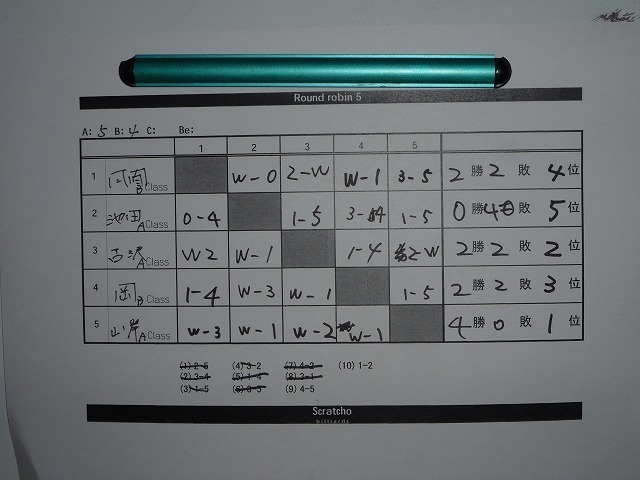 Round robin 5
A: 5 B: 4 C: Be:
1 2 3 4 5
1 河間 B Class W-0 2-W W-1 3-5 2勝2敗 4位
2 池田 A Class 0-4 1-5 3-4 1-5 0勝4敗 5位
3 吉沢 A Class W2 W-1 1-4 2-W 2勝2敗 2位
4 岡 B Class 1-4 W-3 W-1 1-5 2勝2敗 3位
5 山岸 A Class W-3 W-1 W-2 W-1 4勝0敗 1位
(1) 2-5 (4) 3-2 (7) 4-2 (10) 1-2
(2) 3-4 (5) 1-4 (8) 3-1
(3) 1-5 (6) 3-5 (9) 4-5
Scratcho
billiards